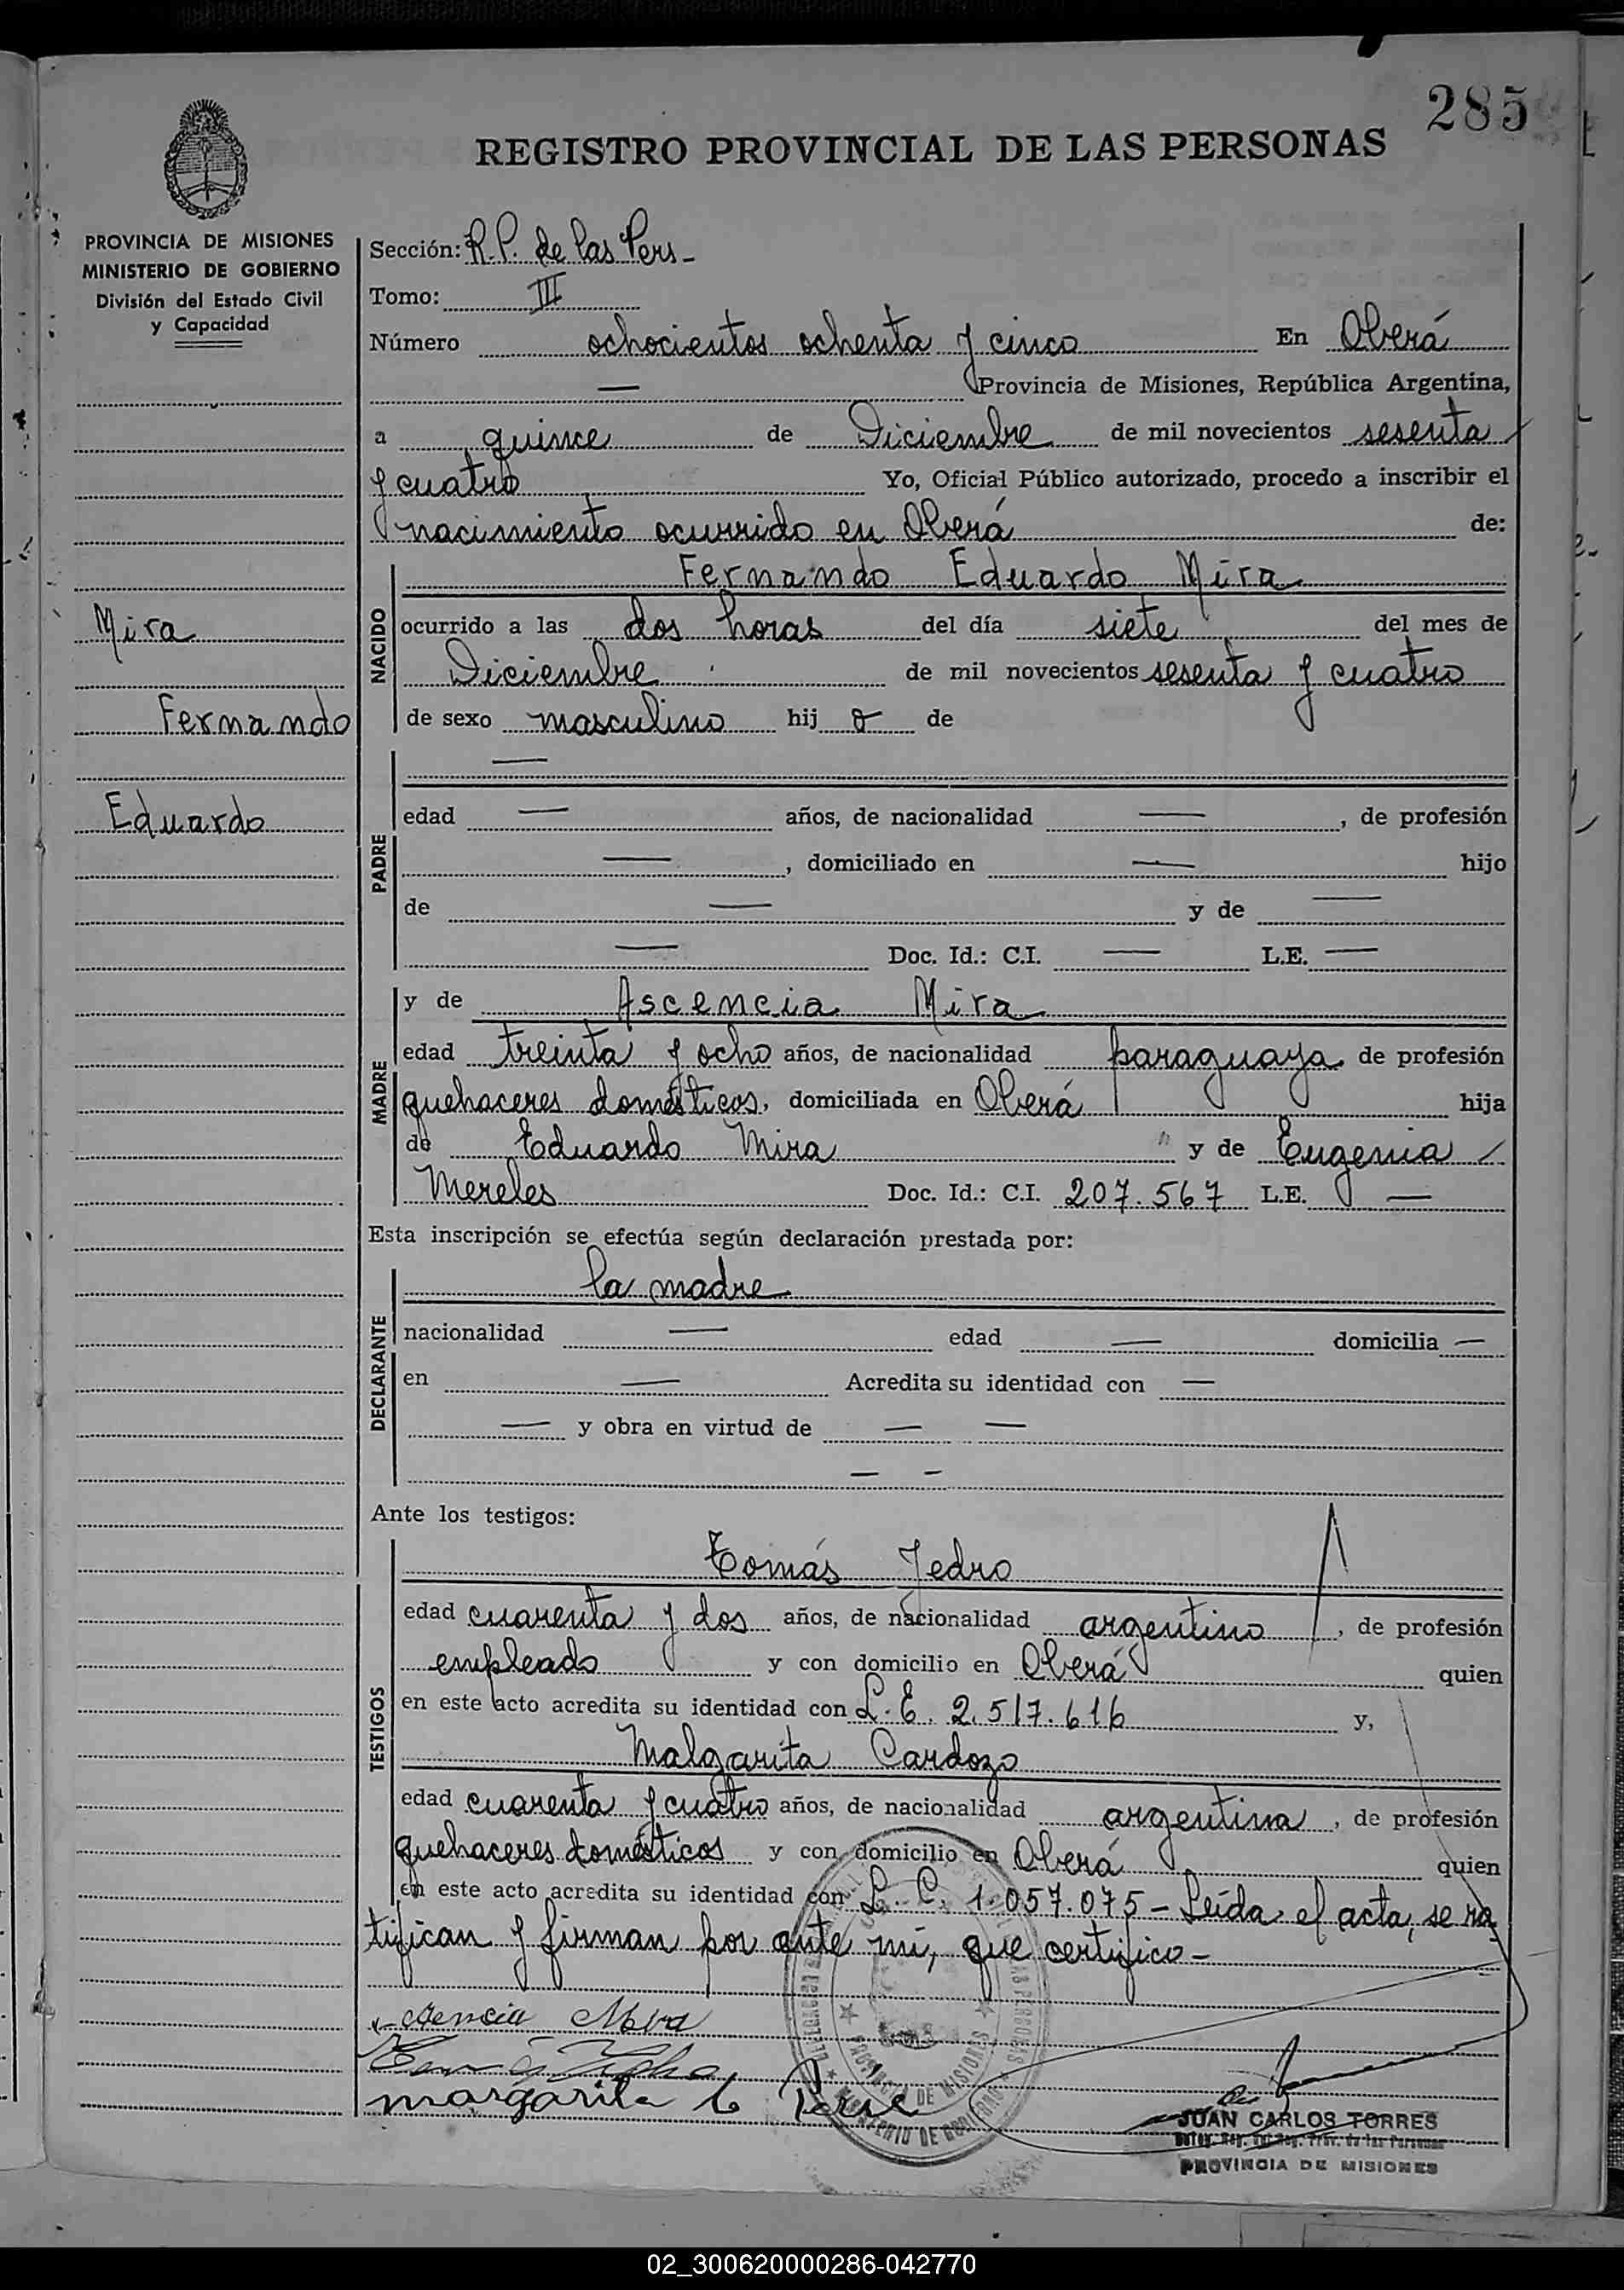 285
REGISTRO PROVINCIAL DE LAS PERSONAS
PROVINCIA DE MISIONES
MINISTERIO DE GOBIERNO
División del Estado Civil
y Capacidad
Sección: R.P. de las Pers-
Tomo: III
Número ochocientos ochenta y cinco En Oberá
— Provincia de Misiones, República Argentina,
a quince de Diciembre de mil novecientos sesenta
y cuatro Yo, Oficial Público autorizado, procedo a inscribir el
nacimiento ocurrido en Oberá de:
Mira
Fernando
Eduardo
NACIDO
Fernando Eduardo Mira
ocurrido a las dos horas del día siete del mes de
Diciembre de mil novecientos sesenta y cuatro
de sexo masculino hij o de
PADRE
—
edad — años, de nacionalidad —, de profesión
—, domiciliado en — hijo
de — y de —
— Doc. Id.: C.I. — L.E. —
MADRE
y de Ascencia Mira
edad treinta y ocho años, de nacionalidad paraguaya de profesión
quehaceres domésticos, domiciliada en Oberá hija
de Eduardo Mira " y de Eugenia
Mereles Doc. Id.: C.I. 207.567 L.E. —
Esta inscripción se efectúa según declaración prestada por:
DECLARANTE
la madre
nacionalidad — edad — domicilia —
en — Acredita su identidad con —
— y obra en virtud de — —
— —
Ante los testigos:
TESTIGOS
Tomás Jedro
edad cuarenta y dos años, de nacionalidad argentino, de profesión
empleado y con domicilio en Oberá quien
en este acto acredita su identidad con L.E. 2.517.616 y,
Malgarita Cardozo
edad cuarenta y cuatro años, de nacionalidad argentina, de profesión
quehaceres domésticos y con domicilio en Oberá quien
en este acto acredita su identidad con L.C. 1.057.075 - Leída el acta, se ra
tifican y firman por ante mí, que certifico-
Mira
margarita C
PROVINCIA DE MISIONES
MINISTERIO DE GOBIERNO
JUAN CARLOS TORRES
PROVINCIA DE MISIONES
02_300620000286-042770